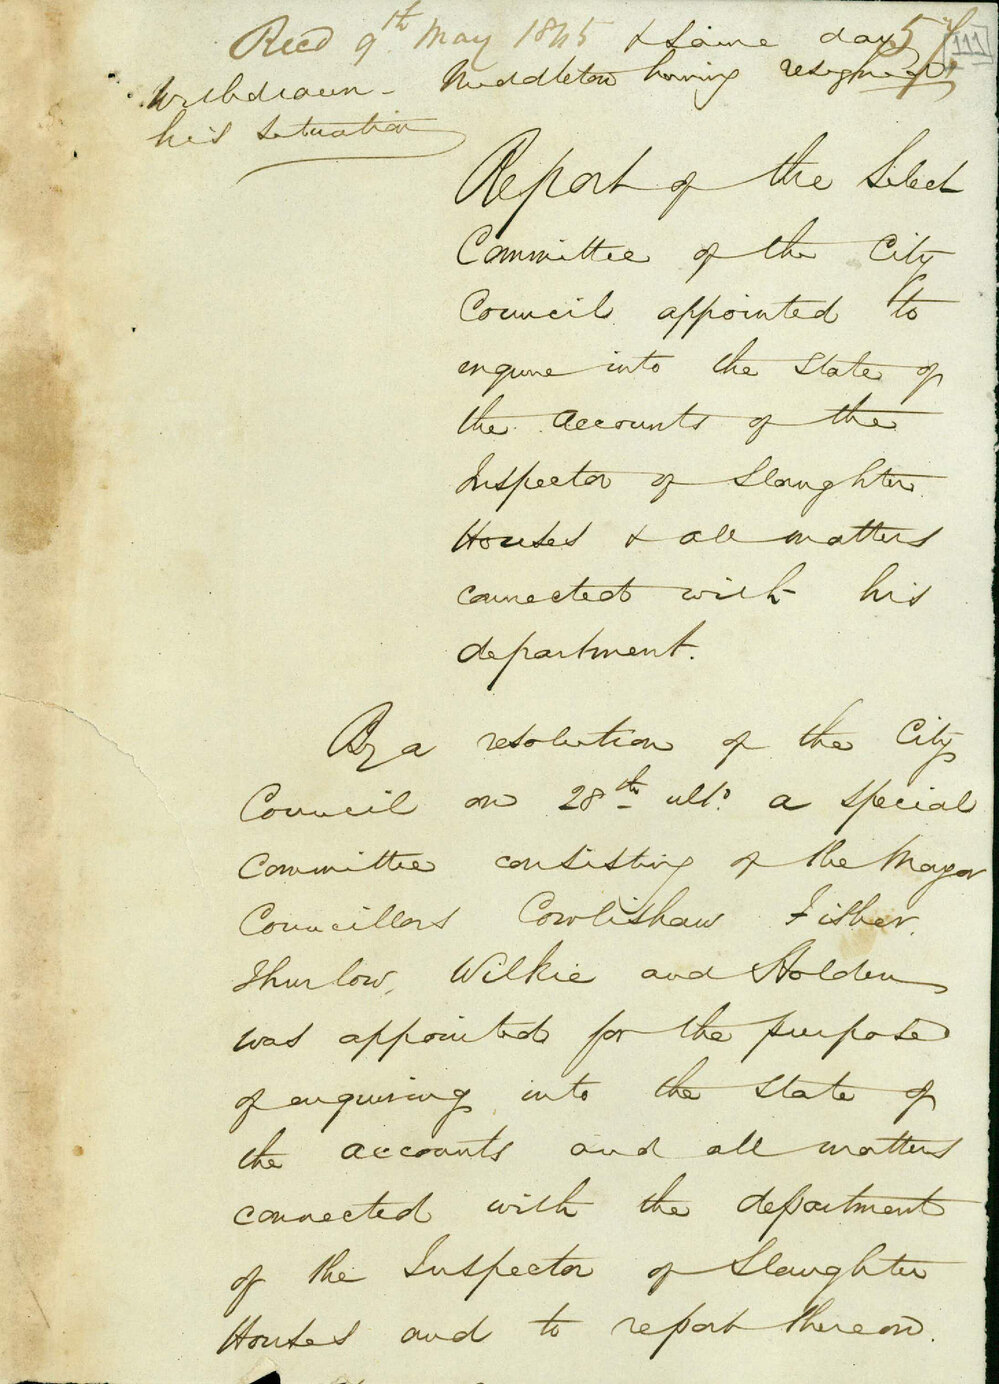 Recd 9th May 1845 & same day
withdrawn - Middleton having resigned
his situation
111
Report of the Select
Committee of the City
Council appointed to
enquire into the State of
the Accounts of the
Inspector of Slaughter
Houses & all matters
connected with his
department.
By a resolution of the City
Council on 28th ulto. a special
Committee consisting of the Mayor
Councillors Cowlishaw Fisher.
Thurlow, Wilkie and Holden
was appointed for the purpose
of enquiring into the state of
the accounts and all matters
connected with the department
of the Inspector of Slaughter
Houses and to report thereon.